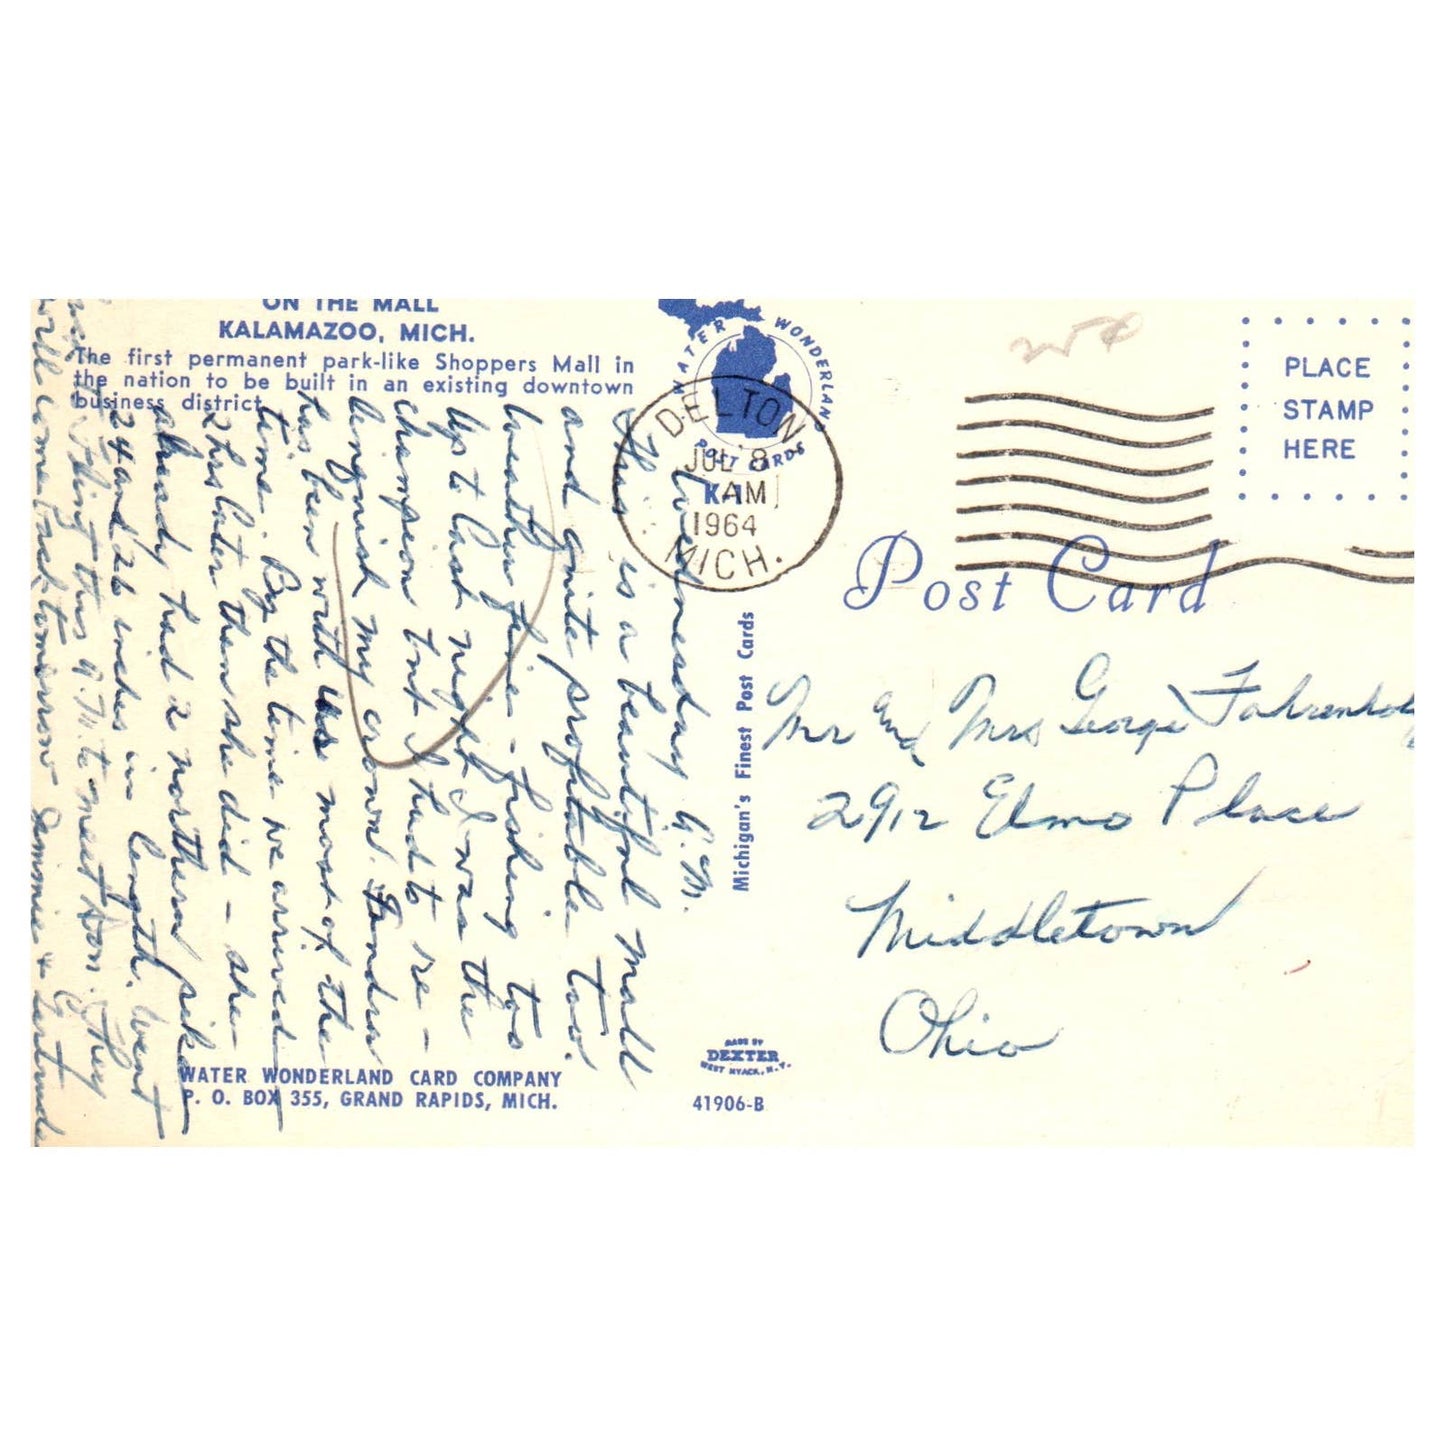 ON THE MALL
KALAMAZOO, MICH.
The first permanent park-like Shoppers Mall in
the nation to be built in an existing downtown
business district.
WATER WONDERLAND
POST CARDS
K-1
DELTON
JUL 8
AM
1964
MICH.
PLACE
STAMP
HERE
Post Card
Michigan's Finest Post Cards
Wednesday A.M.
This is a beautiful mall
and quite profitable too.
Weather fine - fishing too
Up to last night I was the
champeon but I had to re-
linguish my crown.
has been with us most of the
time. By the time we arrived
2 hrs later than she did - she
already had 2 northern pike
24 and 26 inches in length. Went
this A.M. to meet Don. They
will come back tomorrow
Mr and Mrs George Fahrenholz
2912 Elmo Place
Middletown
Ohio
MADE BY
DEXTER
WEST NYACK, N.Y.
41906-B
WATER WONDERLAND CARD COMPANY
P. O. BOX 355, GRAND RAPIDS, MICH.